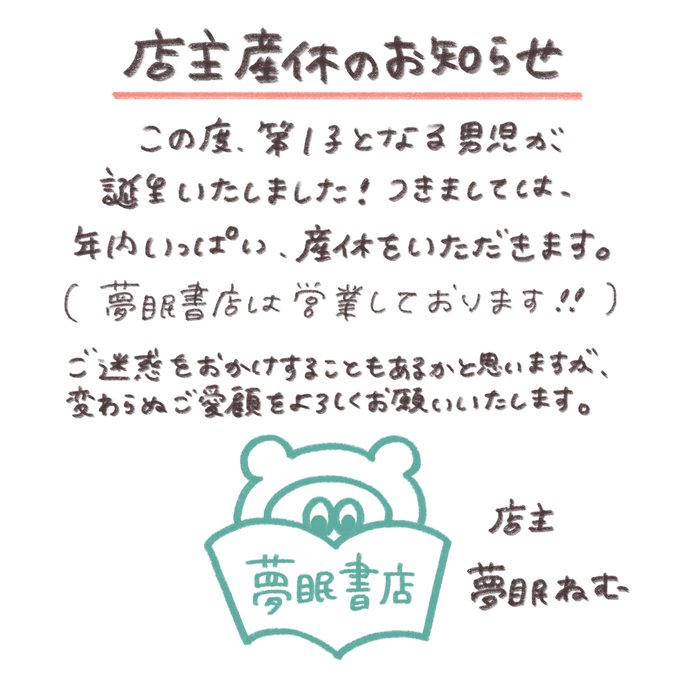 店主産休のお知らせ
この度、第1子となる男児が
誕生いたしました！つきましては、
年内いっぱい、産休をいただきます。
（夢眠書店は営業しております！！）
ご迷惑をおかけすることもあるかと思いますが、
変わらぬご愛顧をよろしくお願いいたします。
夢眠書店
店主
夢眠ねむ